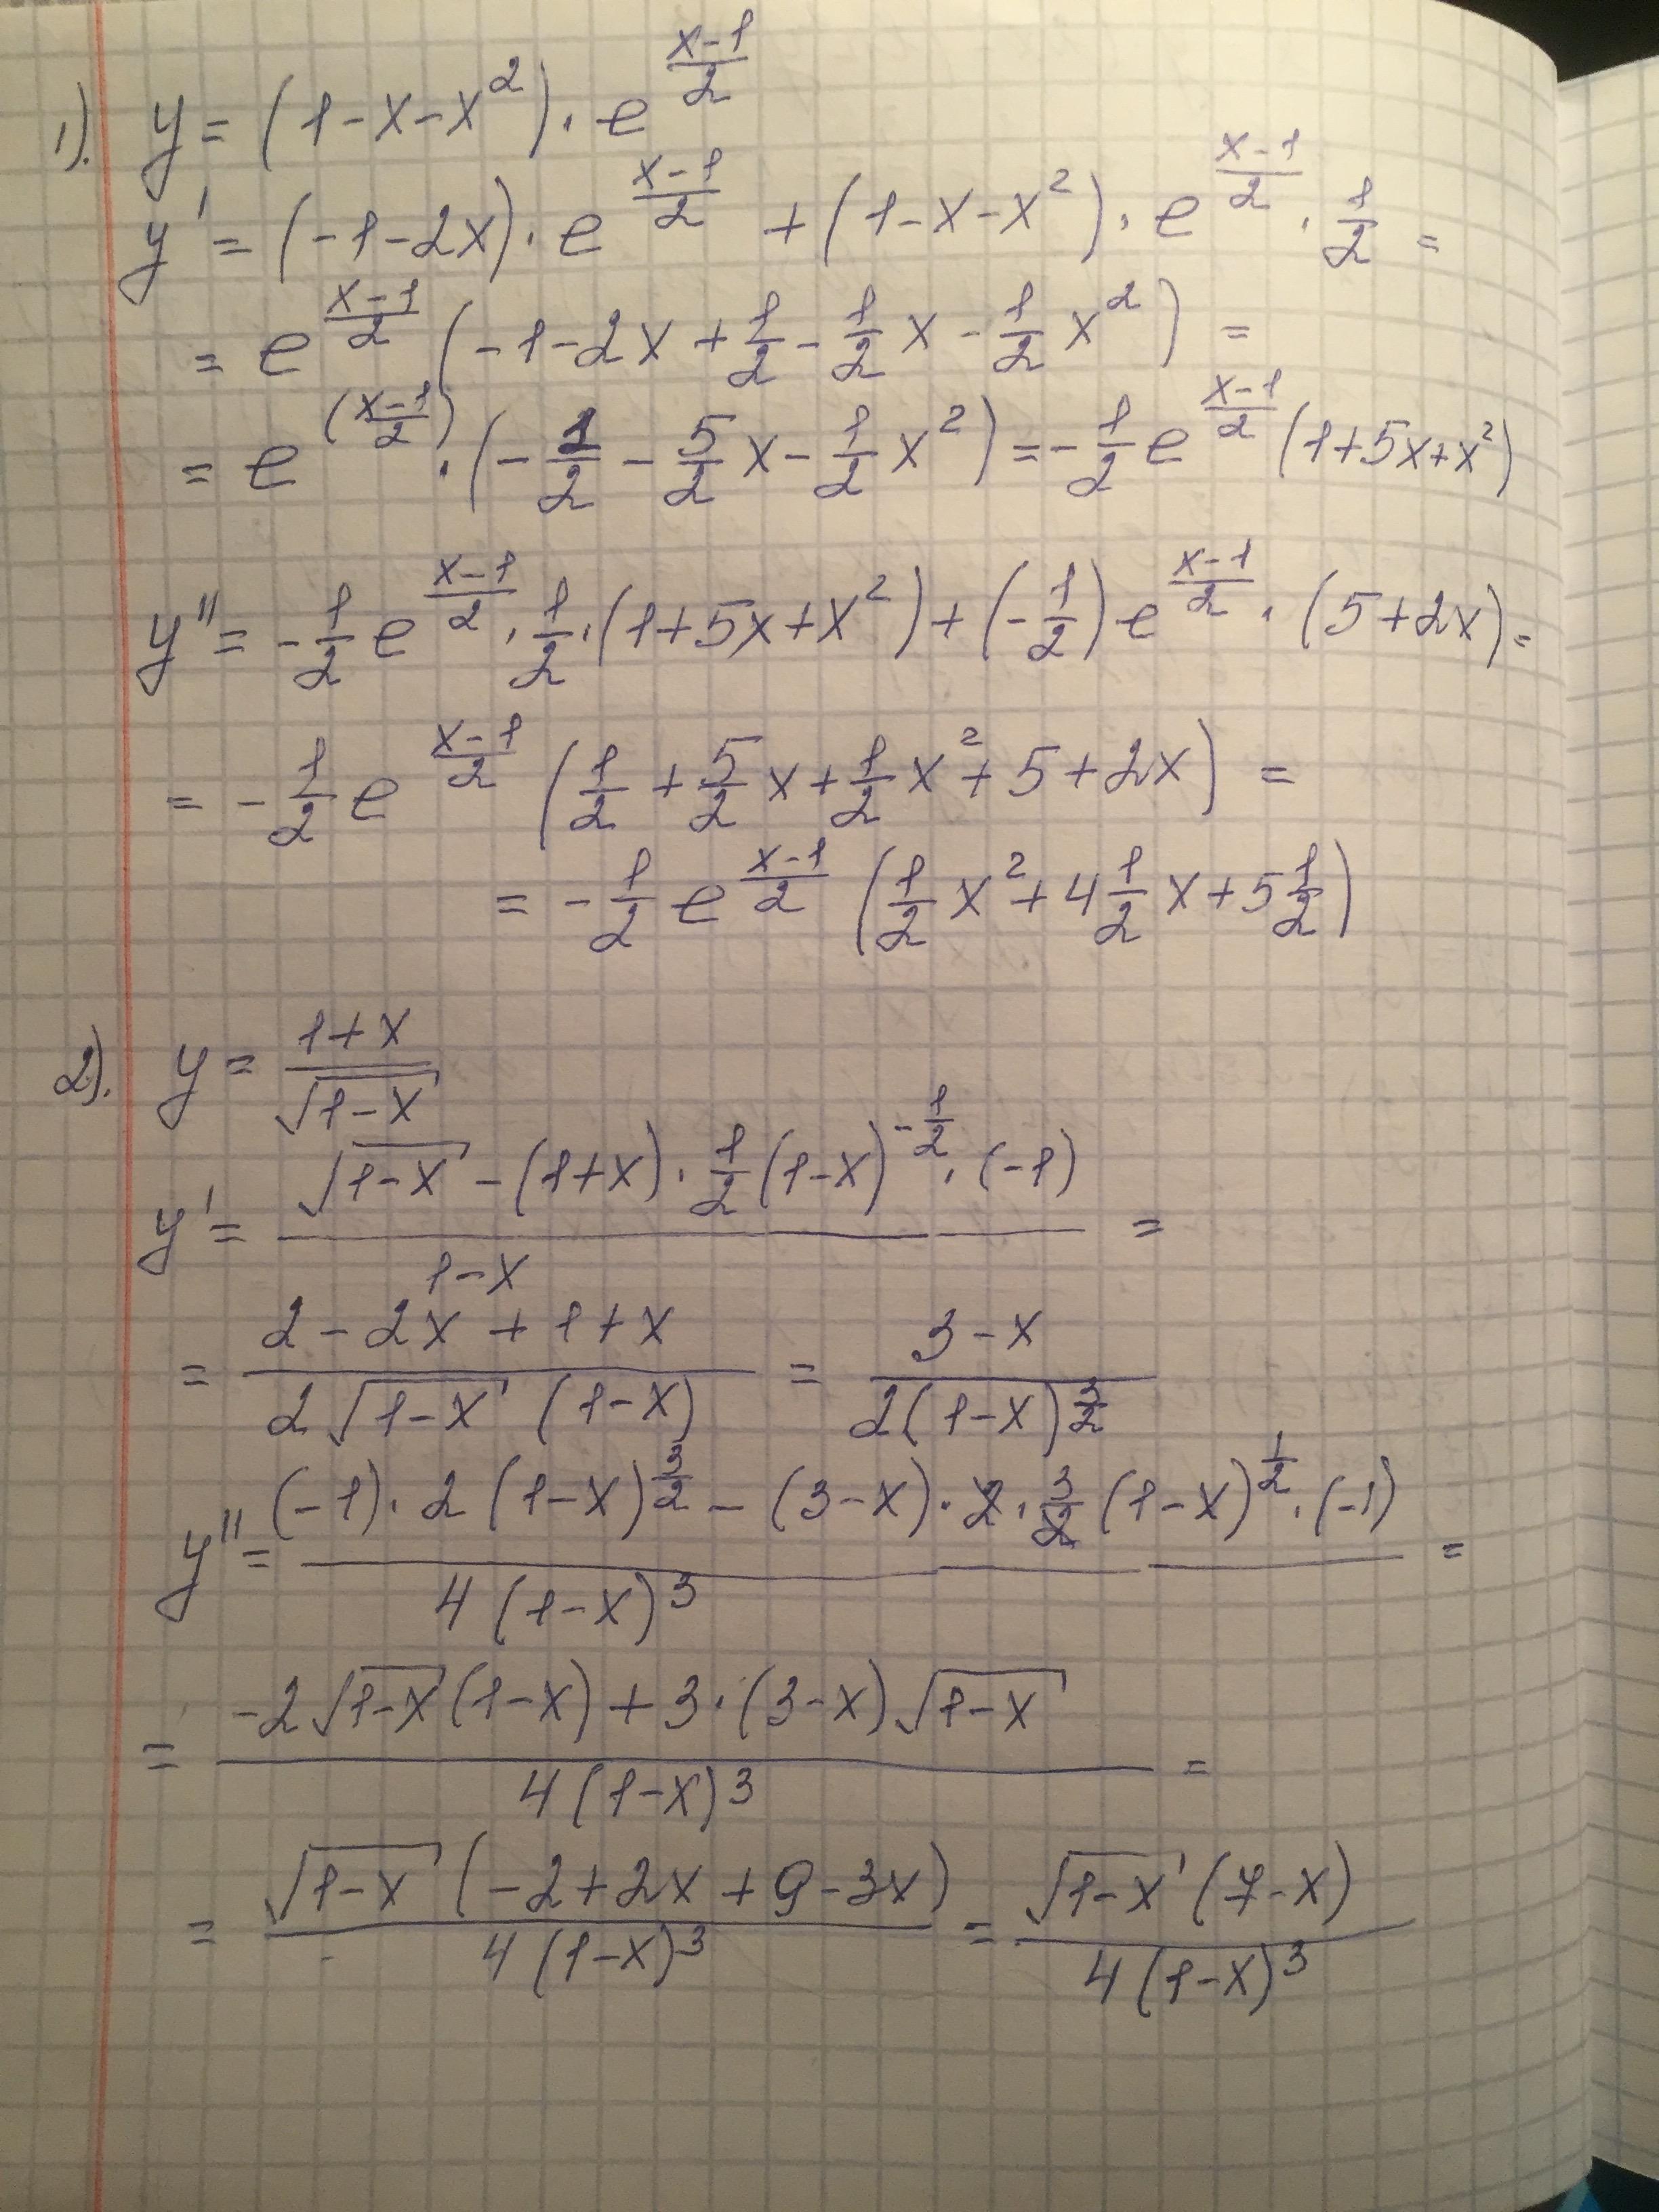 1). y = (1-x-x²)·e^((x-1)/2)
y' = (-1-2x)·e^((x-1)/2) + (1-x-x²)·e^((x-1)/2)·1/2 =
= e^((x-1)/2) (-1-2x+1/2-1/2x-1/2x²) =
= e^((x-1)/2)·(-1/2-5/2x-1/2x²) = -1/2e^((x-1)/2)(1+5x+x²)
y'' = -1/2e^((x-1)/2)·1/2·(1+5x+x²)+(-1/2)e^((x-1)/2)·(5+2x) =
= -1/2e^((x-1)/2) (1/2+5/2x+1/2x²+5+2x) =
= -1/2e^((x-1)/2) (1/2x²+4 1/2x+5 1/2)
2). y = (1+x)/√(1-x)
y' = (√(1-x) - (1+x)·1/2(1-x)^(-1/2)·(-1))/(1-x) =
= (2-2x+1+x)/(2√(1-x) (1-x)) = (3-x)/(2(1-x)^(3/2))
y'' = ((-1)·2(1-x)^(3/2) - (3-x)·2·3/2(1-x)^(1/2)·(-1))/(4(1-x)³) =
= (-2√(1-x)(1-x)+3·(3-x)√(1-x))/(4(1-x)³) =
= (√(1-x) (-2+2x+9-3x))/(4(1-x)³) = (√(1-x) (7-x))/(4(1-x)³)